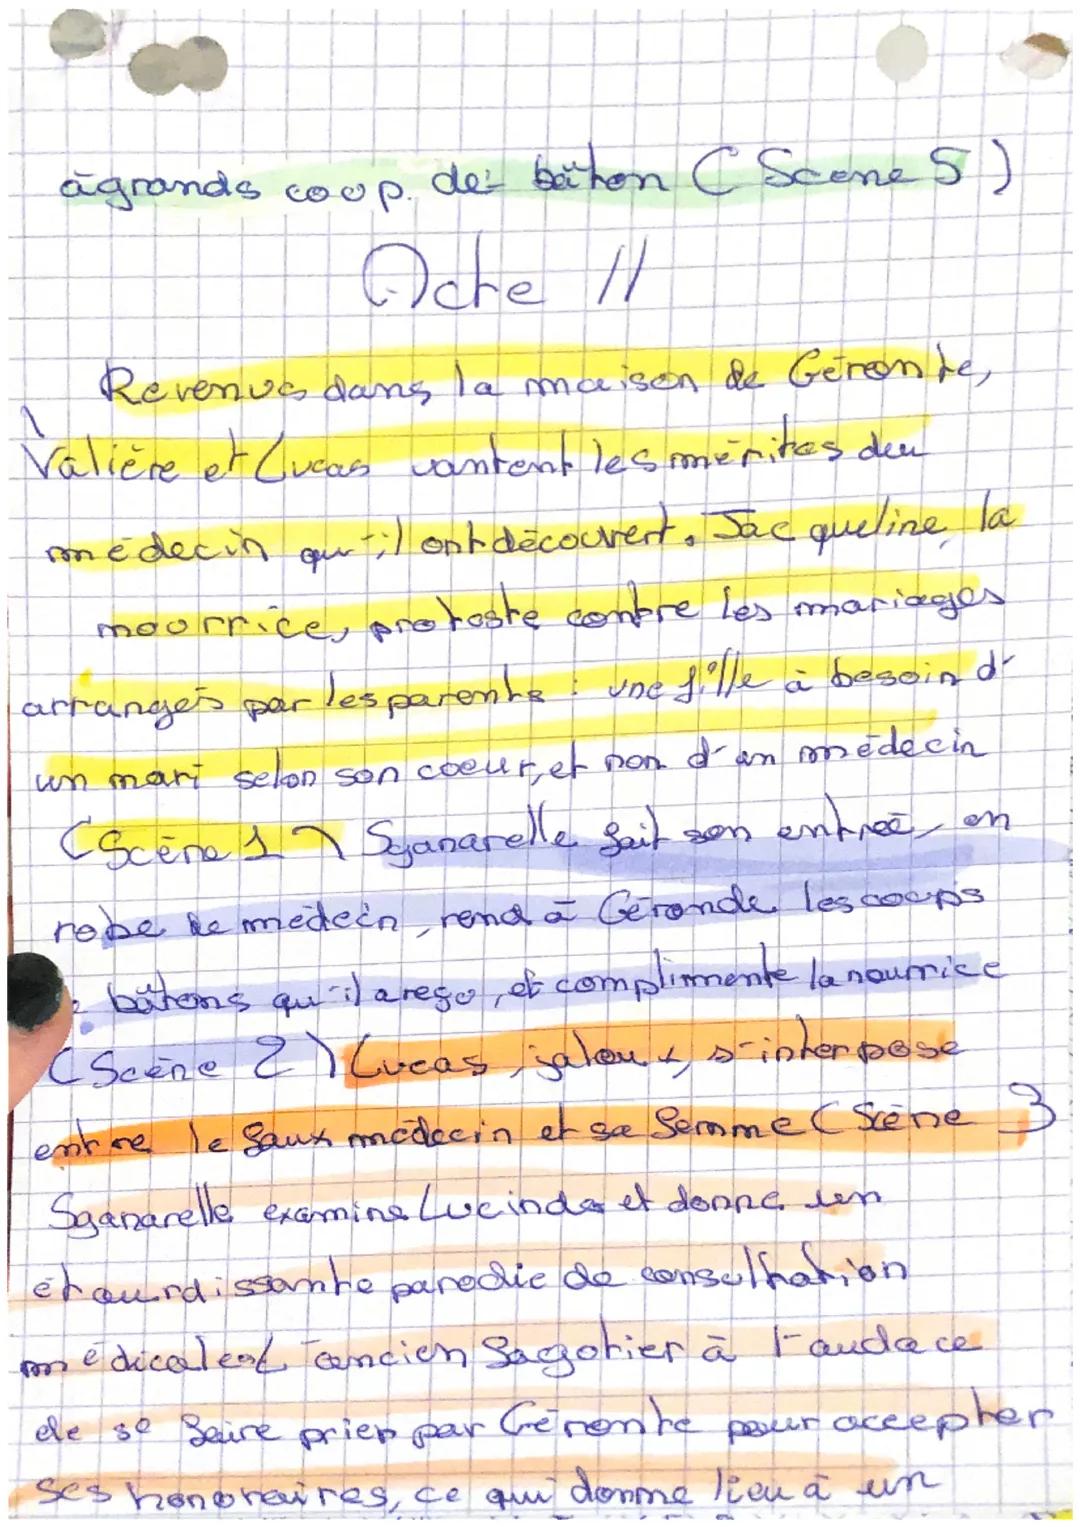 à grands coop. de bâton (Scène 5)
Acte II
Revenus dans la maison de Géronte,
Valière et Lucas vantent les mérites du
médecin qu'il ont découvert. Jacqueline, la
nourrice, proteste contre les mariages
arrangés par les parents : une fille à besoin d'
un mari selon son coeur, et non d'un médecin
(Scène 1) Sganarelle fait son entrée, en
robe de médecin, rend à Géronde les coups
bâtons qu'il a reçu, et complimente la nourrice
(Scène 2) Lucas, jaloux, s'interpose
entre le faux médecin et sa femme (Scène 3
Sganarelle examine Lucinde et donne un
étourdissante parodie de consultation
médicale L'ancien fagotier à l'audace
de se faire prier par Géronte pour accepter
ses honoraires, ce qui donne lieu à un